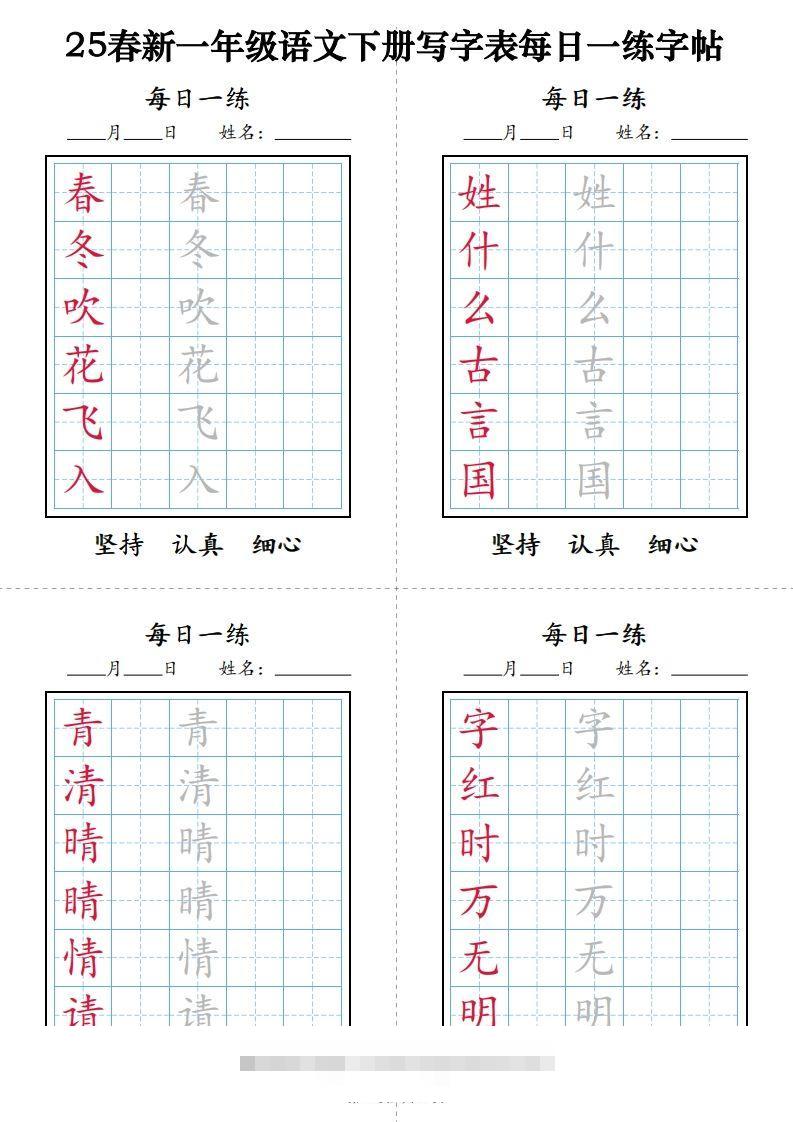 25春新一年级语文下册写字表每日一练字帖
每日一练
____月____日 姓名：________
春 春
冬 冬
吹 吹
花 花
飞 飞
入 入
坚持 认真 细心
每日一练
____月____日 姓名：________
姓 姓
什 什
么 么
古 古
言 言
国 国
坚持 认真 细心
每日一练
____月____日 姓名：________
青 青
清 清
晴 晴
睛 睛
情 情
请 请
每日一练
____月____日 姓名：________
字 字
红 红
时 时
万 万
无 无
明 明